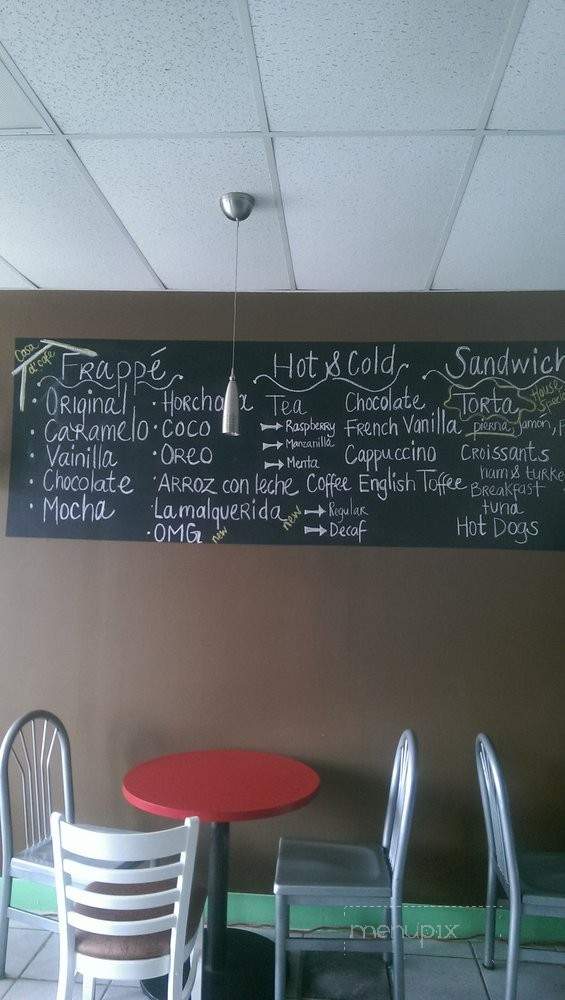 Casa
de cafe
Frappé
Original
Caramelo
Vainilla
Chocolate
Mocha
Coco
Oreo
Arroz con leche
Lamalquerida new
OMG new
Hot & Cold
Tea
Raspberry
Manzanilla
Menta
Coffee
Regular
Decaf
Chocolate
French Vanilla
Cappuccino
English Toffee
Sandwich
Torta House
Special
pierna, Jamon,
Croissants
ham & turke
Breakfast
tuna
Hot Dogs
menupix